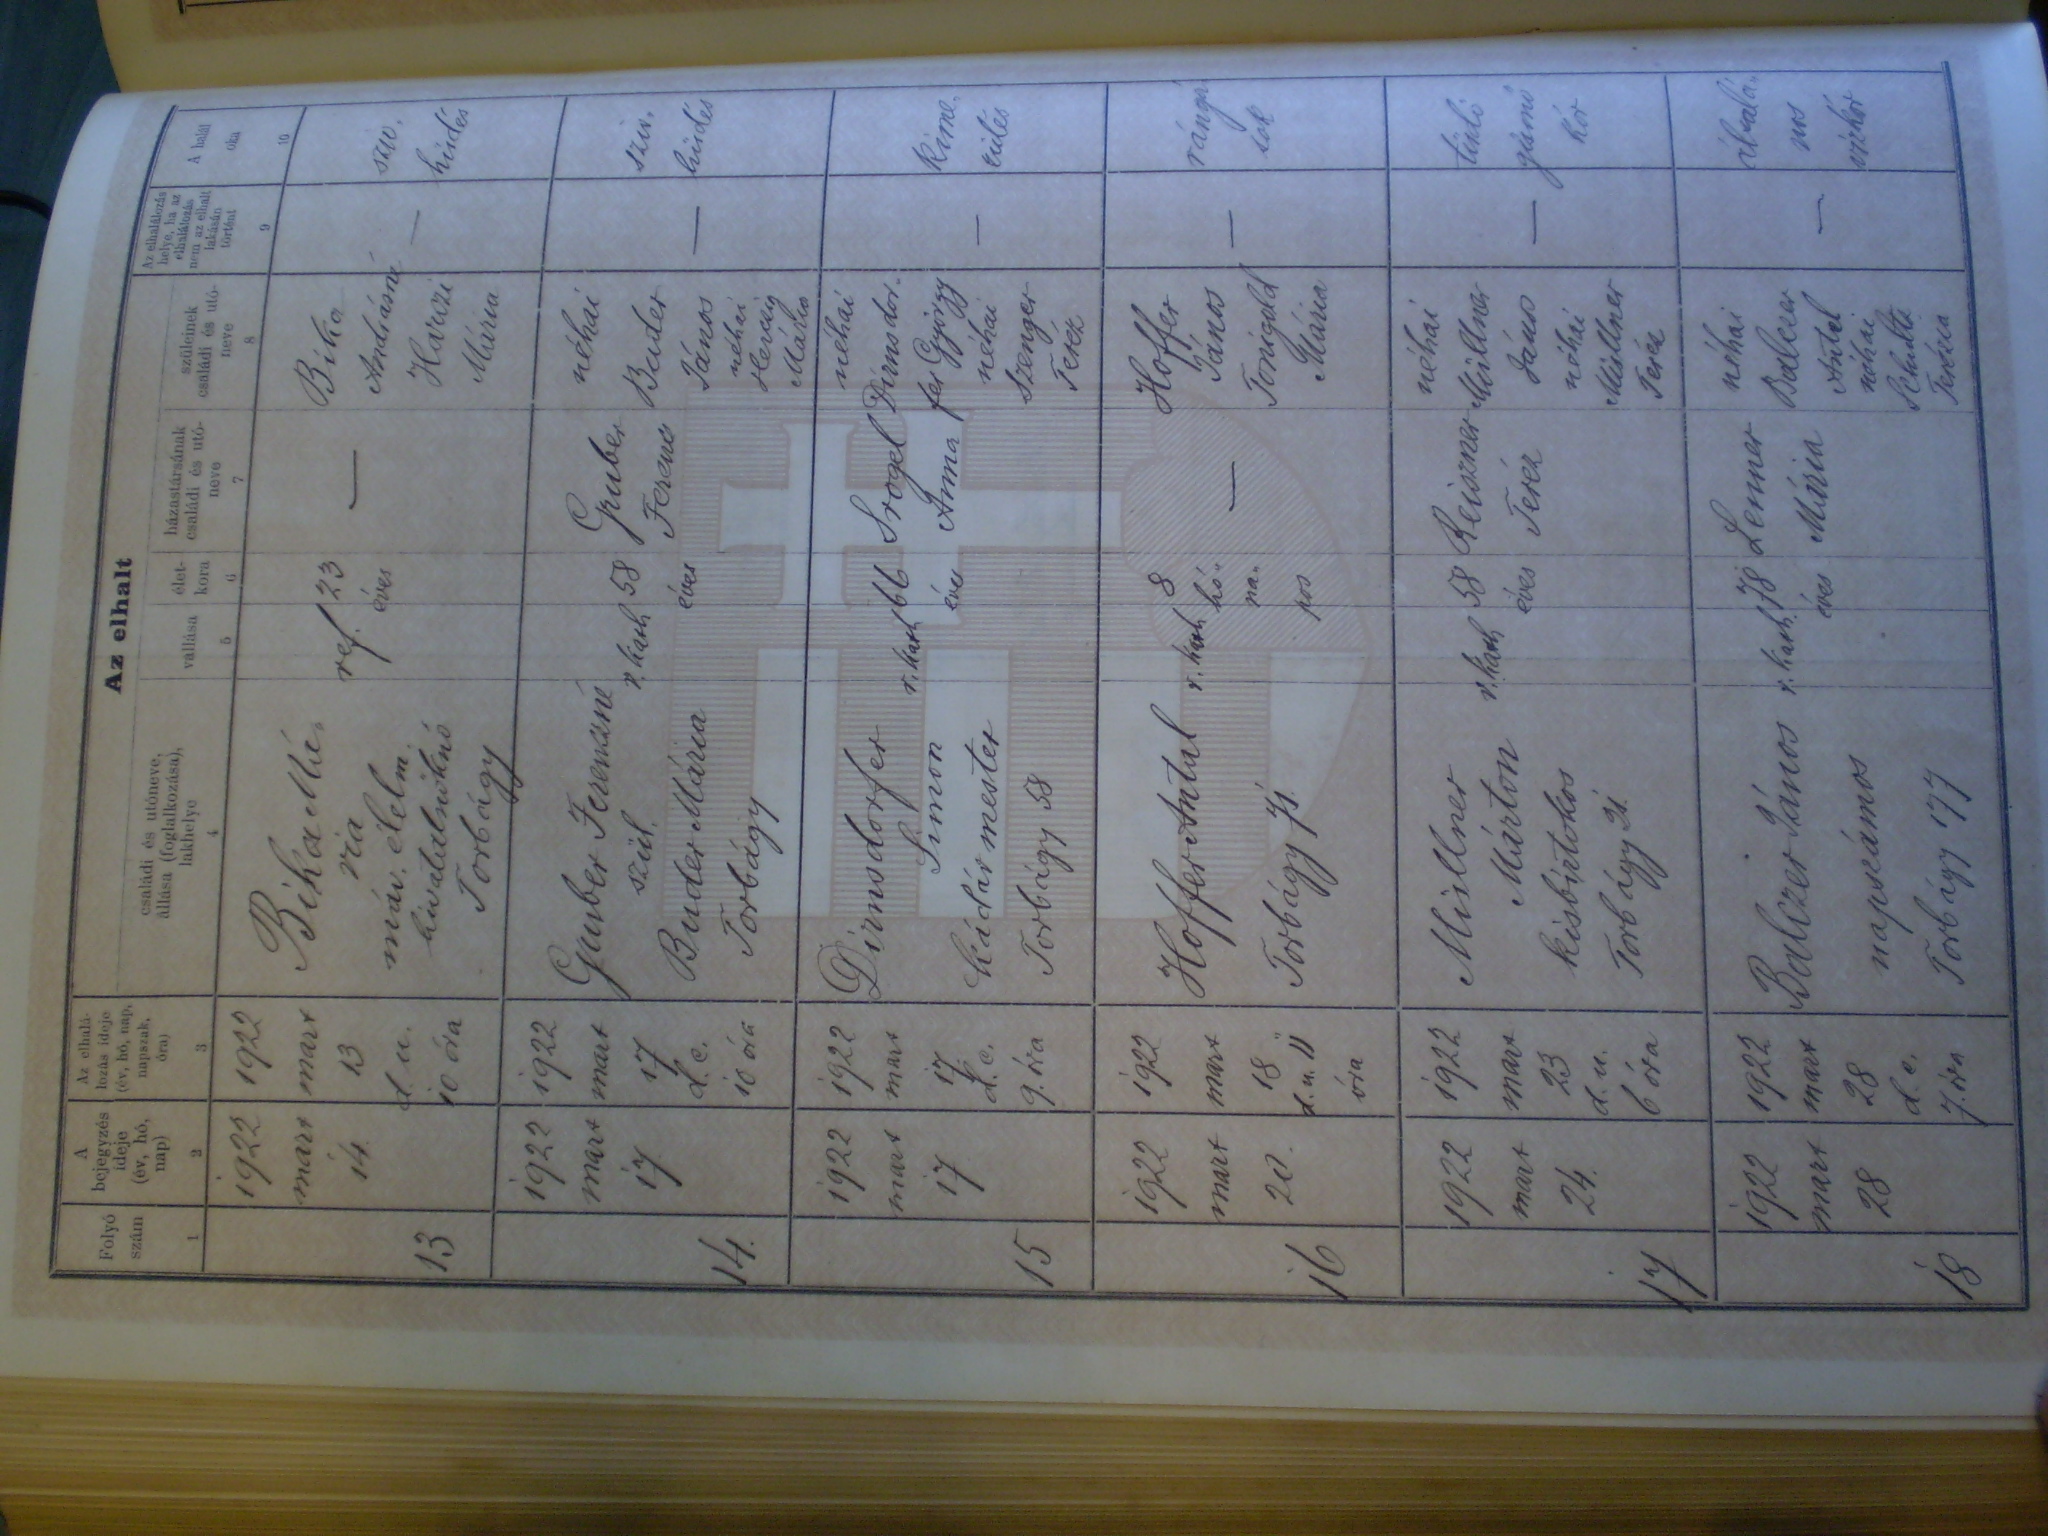 Az elhalt
Folyó
szám
A
bejegyzés
ideje
(év, hó,
nap)
Az elhalá-
lozás ideje
(év, hó, nap,
napszak,
óra)
családi és utóneve,
állása (foglalkozása),
lakhelye
vallása
élet-
kora
házastársának
családi és utó-
neve
szüleinek
családi és utó-
neve
Az elhalálozás
helye, ha az
elhalálozás
nem az elhalt
lakásán
történt
A halál
oka
1
2
3
4
5
6
7
8
9
10
13
1922
mart
14.
1922
mart
13
d. u.
10 óra
Bika Má-
ria
máv. élelm.
hivatalnoknő
Torbágy
ref.
23
éves
—
Bika
Andrásné
Mária
—
szív.
hüdés
14.
1922
mart
17.
1922
mart
17
d. e.
10 óra
Gruber Ferencné
szül.
Buder Mária
Torbágy
r. kath
58
éves
Gruber
Ferencz
néhai
Buder
János
néhai
Herczig
Mária
—
szív.
hüdés
15
1922
mart
17
1922
mart
17
d. e.
9. óra
Dirnsdorfer
Simon
kádármester
Torbágy 58
r. kath
66
éves
Srogel
Anna
néhai
Dirnsdor-
fer György
néhai
Szenger
Teréz
—
kime-
rülés
16
1922
mart
20.
1922
mart
18
d. u. 11
óra
Hoffer Antal
Torbágy 71.
r. kath
8
hó-
na-
pos
—
Hoffer
János
Tonigold
Mária
—
rángá
sok
17
1922
mart
24.
1922
mart
23
d. u.
6 óra
Millner
Márton
kisbirtokos
Torbágy 21.
r. kath
58
éves
Reiszner
Teréz
néhai
Millner
János
néhai
Müllner
Teréz
—
tüdő
gümő
kór
18
1922
mart
28
1922
mart
28
d. e.
7. óra
Balczer János
napszámos
Torbágy 177
r. kath.
78
éves
Lenner
Mária
néhai
Balczer
Antal
néhai
Schultz
Terézia
—
általá-
nos
vízkór